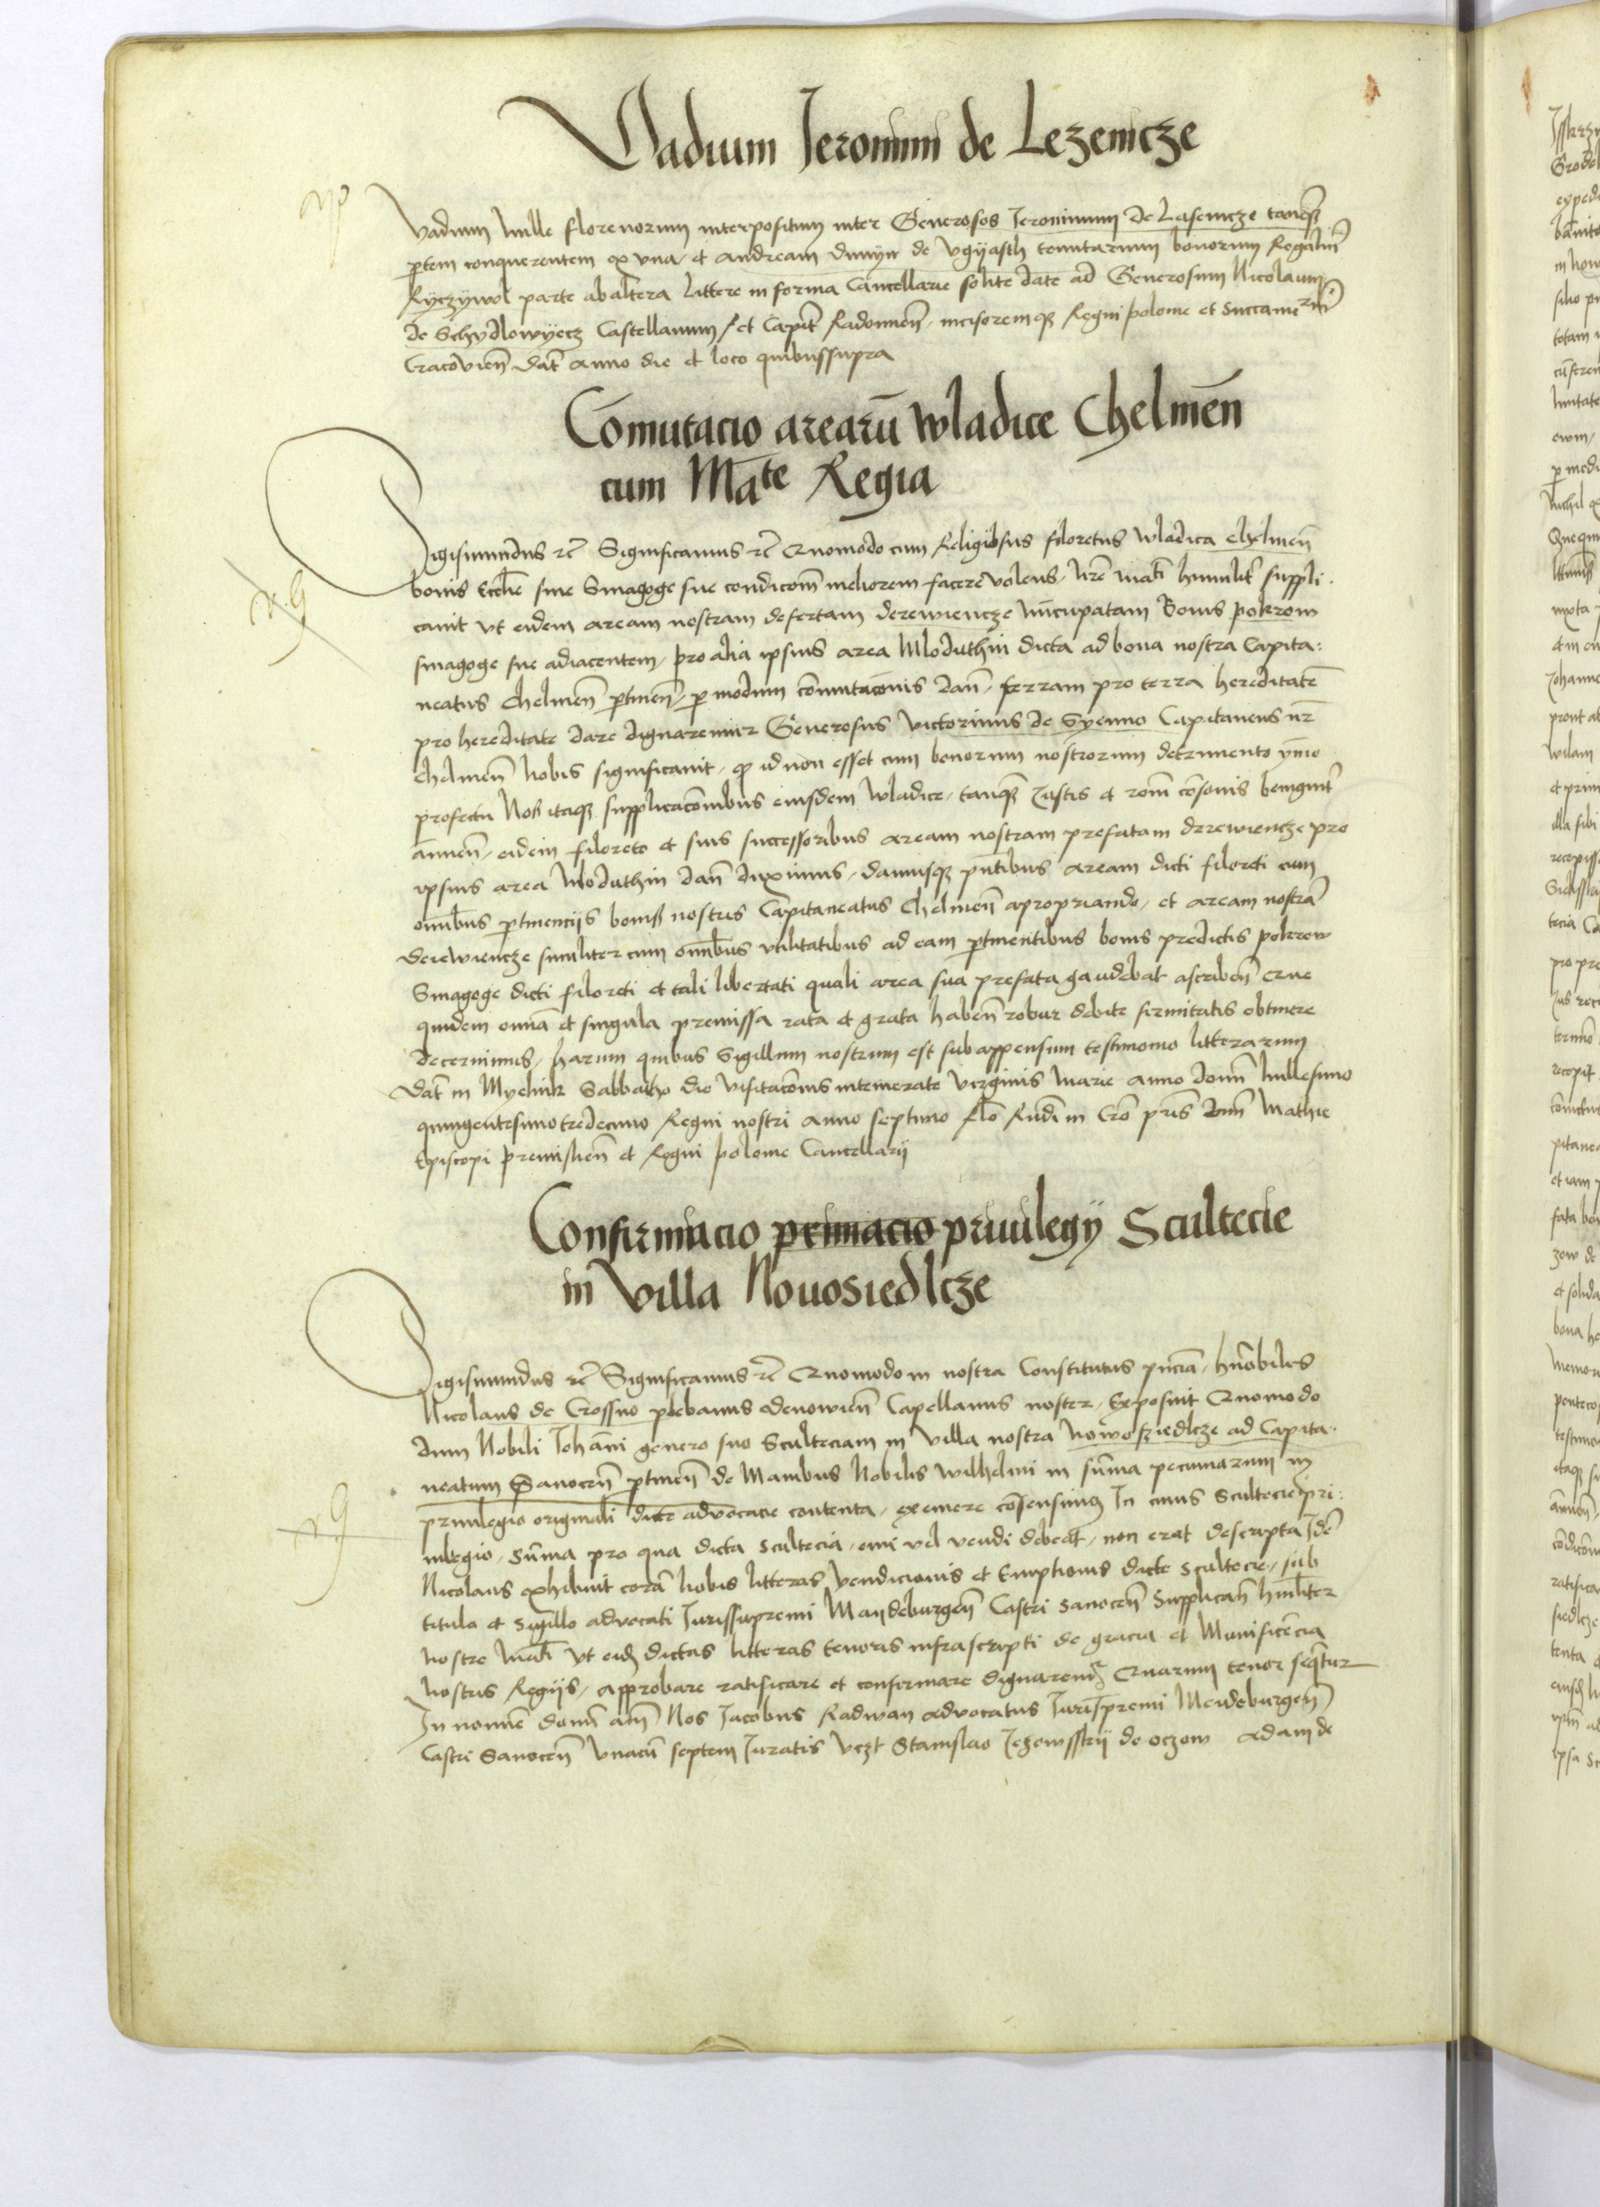 Vadium Jeronimi de Lezenicze
Vadium Mille florenorum interpositum inter Generosos Jeronimum de Lasenicze tanq̃
ꝑtem conquerentem ex vna, et andream dunyn de vgyasth tenutarium bonorum Regaliu͂
Ryczywol parte abaltera Littere in forma Cancellarie solite date ad Generosum Nicolaum
de Schydlowyecz Castellanum et Capit̃ Radomien̄, incisoremqꝫ Regni polonie et Succamerm̄
Cracovien̄ Dat̃ anno die et loco quibussupra
Com̄utacio arearū wladice Chelmen̄
cum Mate Regia
Sigismundus rc̃ Significamus rc̃ Quomodo cum Religiosus filoretus wladica chelmen̄
bonis Eccl̃ie sine Sinagoge sue condicōm meliorem facere volens, nr̃e mat̃i humilit̃ suppli.
cauit vt eidem aream nostram desertam derewiencze nūcupatam Bonis pokrow
sinagoge sue adiacentem, pro alia ipsius area Moduthin dicta ad bona nostra Capita:
neatus Chelmen̄ ꝑtinen̄, ꝑ modum com̄utacōnis dan̄, terram pro terra hereditatē
pro hereditate dare dignaremur Generosus victorinus de Syenno Capitaneus nr̃
chelmen̄ Nobis significauit, ꝙ id non esset cum bonorum nostrorum detrimento ymo
profectu Nos itaqꝫ supplicacōnibus eiusdem wladice, tanqꝫ Justis et rōni cōsonis benignit̃
annuen̄, eidem filoreto et suis successoribus aream nostram prefatam derewiencze pro
ipsius area Moduthin dan̄ duximus, damusqꝫ pn̄tibus aream dicti filoreti cum
om̄ibus ꝑtinencijs bonis nostris Capitaneatus Chelmen̄ apropriando, et aream nostrā
derewiencze similiter cum om̄ibus vtilitatibus ad eam ꝑtinentibus bonis predictis pokrow
Sinagoge dicti filoreti et tali libertati quali area sua prefata gaudebat ascriben̄ Que
quidem omnia et singula premissa rata et grata haben̄ robur debite firmitatis obtinere
decernimus, harum quibus Sigillum nostrum est subappensum testimonio litterarum
Dat̃ in Myelnik Sabbatho die visitacōnis intemerate virginis Marie anno domi̅ Millesimo
quingentesimotredecimo Regni nostri anno septimo Rlo̅ Rndi̅ in Cro̅ pris̅ dni̅ Mathie
Episcopi premislien̄ et Regni polonie Cancellarij
Confirmacio primacio priuilegij Scultecie
in villa Nouosiedlcze
Sigismundus rc̃ Significamus rc̃ Quomodo in nostra Constitutus pn̄cia, hn̄obilis
Nicolaus de Crossno plebanus odenowien̄ Capellanus noster, Exposuit Quomodo
dum Nobili Johāni genero suo Sculteciam in villa nostra Nowosziedlcze ad Capita.
neatum Sanocen̄ ꝑtinen̄ de Manibus Nobilis wilhelmi in sum̄a pecuniarum in
priuilegio originali dicte advocacie contenta, exemere cōsensimꝰ In cuius Scultecie pri:
uilegio, sum̄a pro qua dicta scultecia, emi vel vendi debeat, non erat descripta Idē
Nicolaus exhibuit corā Nobis litteras vendicionis et Emptionis dicte scultecie, sub
titulo et Sigillo advocati Jurissupremi Maydeburgen̄ Castri Sanocen̄ Supplican̄ humilr̃
nostre Mat̃i vt eidꝫ dictas litteras tenoris infrascripti de gracia et Munificēcia
nostris Regijs, approbare ratificare et confirmare dignaremr̃ Quarum tenor seqitur
In nomiē domi̅ am̄ Nos Jacobus Radwan advocatus Jurissupremi Meideburgen̄
Castri Sanocen̄ vnacū septem Juratis vczt Stanislao Jezowsskij de oczow adam de